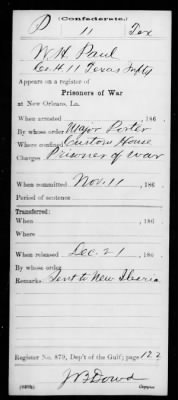 (Confederate.)
P 11 Tex
W. H. Paul
Co. H. 11 Texas Infty
Appears on a register of
Prisoners of War
at New Orleans, La.
When arrested , 186 .
By whose order Major Porter
Where confined Custom House
Charges Prisoner of War
When committed Nov. 11 , 186 .
Period of sentence
Transferred:
When , 186 .
Where
When released Dec. 21 , 186 .
By whose order
Remarks: Sent to New Iberia
Register No. 879, Dep't of the Gulf; page 122
J B Dowd
Copyist.